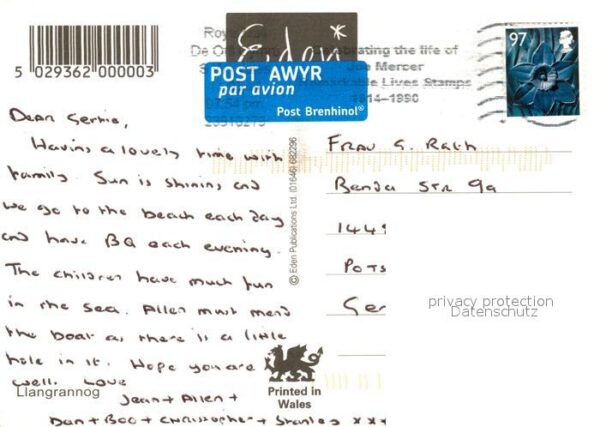 Royal
Eden*
Celebrating the life of
Joe Mercer
Remarkable Lives Stamps
1914-1990
97
5 029362 000003
POST AWYR
par avion
Post Brenhinol®
Having a lovely time with
family. Sun is shining and
we go to the beach each day
and have BQ each evening.
The children have much fun
in the sea. Allen must mend
the boat as there is a little
hole in it. Hope you are
well. Love
Jean + Allen +
Dan + Boo + Christopher + Stanley x x x
Llangrannog
© Eden Publications Ltd. (01646) 682296
Printed in
Wales
Frau G. Rath
Str 9a
1449
Pots
Ger
privacy protection
Datenschutz